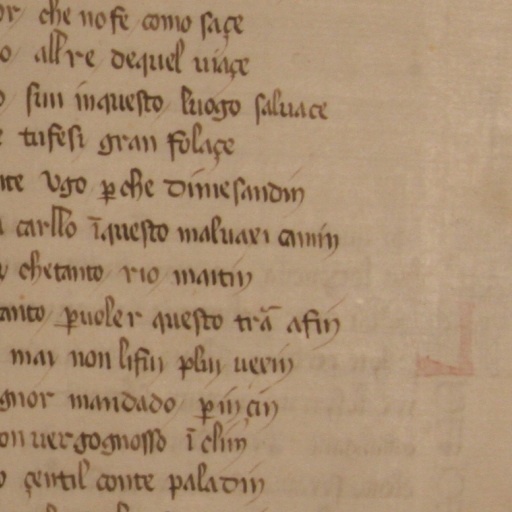 or che no fe como saçe
o all re de quel uiaçe
sun in questo luogo saluaçe
tu fesi gran folaçe
nte Ugo ꝑche dime sandin
carllo ĩ questo maluaxi camin
che tanto rio matin
tanto ꝑ uoler questo trã afin
mai non li fu plu uexin
gnor mandado ꝑ inçin
on uergognosso ĩclin
o çentil conte paladin